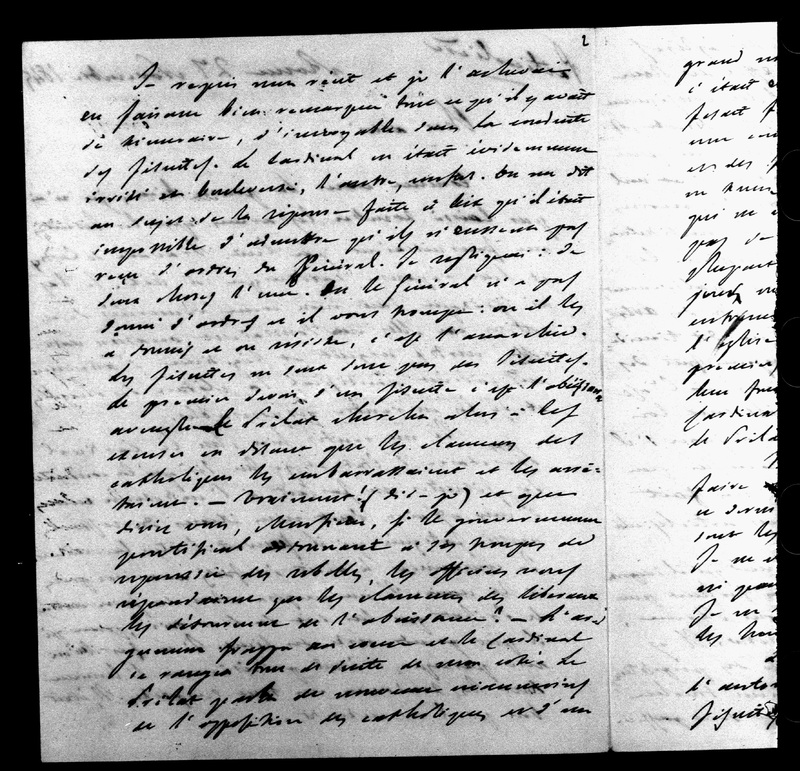 2
Je repris mon récit et je l'achevai
en faisant bien remarquer tout ce qu'il y avait
de téméraire, d'incroyable dans la conduite
des Jésuites. Le Cardinal en était évidemment
irrité et bouleversé, l'autre, confus. On me dit
au sujet de la réponse faite à Loi qu'il était
impossible d'admettre qu'ils n'eussent pas
reçu d'ordres du Général. Je répliquai: de
deux choses l'une. Ou le Général n'a pas
donné d'ordres et il vous trompe: ou il les
a donnés et on résiste, c'est l'anarchie.
Les Jésuites ne sont donc pas des Jésuites.
Le premier devoir d'un Jésuite c'est l'obéissance
aveugle. Le Prélat chercha alors à les
excuser en disant que les clameurs des
catholiques les embarrassaient et les arrê-
taient. — Vraiment! (dis-je) et que
diriez vous, Monsieur, si le gouvernement
pontifical ordonnant à ses troupes de
repousser des rebelles, les officiers vous
répondaient que les clameurs des libéraux
les détournent de l'obéissance? — L'ar-
gument frappa au coeur et le Cardinal
se rangea tout de suite de mon côté. Le
Prélat parla de nouveau
de l'opposition des catholiques et d'un
grand
c'était
faisait
une
et des
qui ne
pas de
l'église
premier
leur
Cardinal
le Prélat
faire
ce
sont les
Je ne
ni
Je
les
l'autor
Jésuites